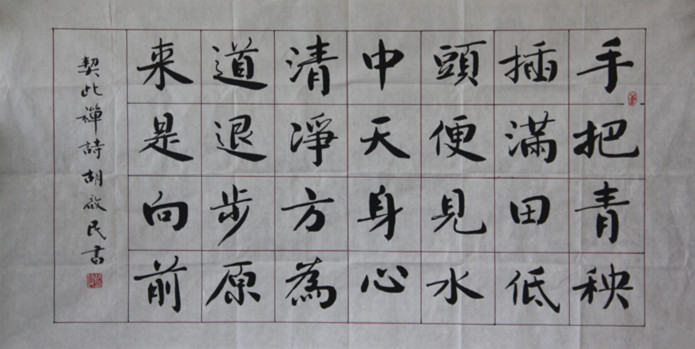 手把青秧
插滿田低
頭便見水
中天身心
清淨方為
道退步原
来是向前
契此禪詩胡啟民书